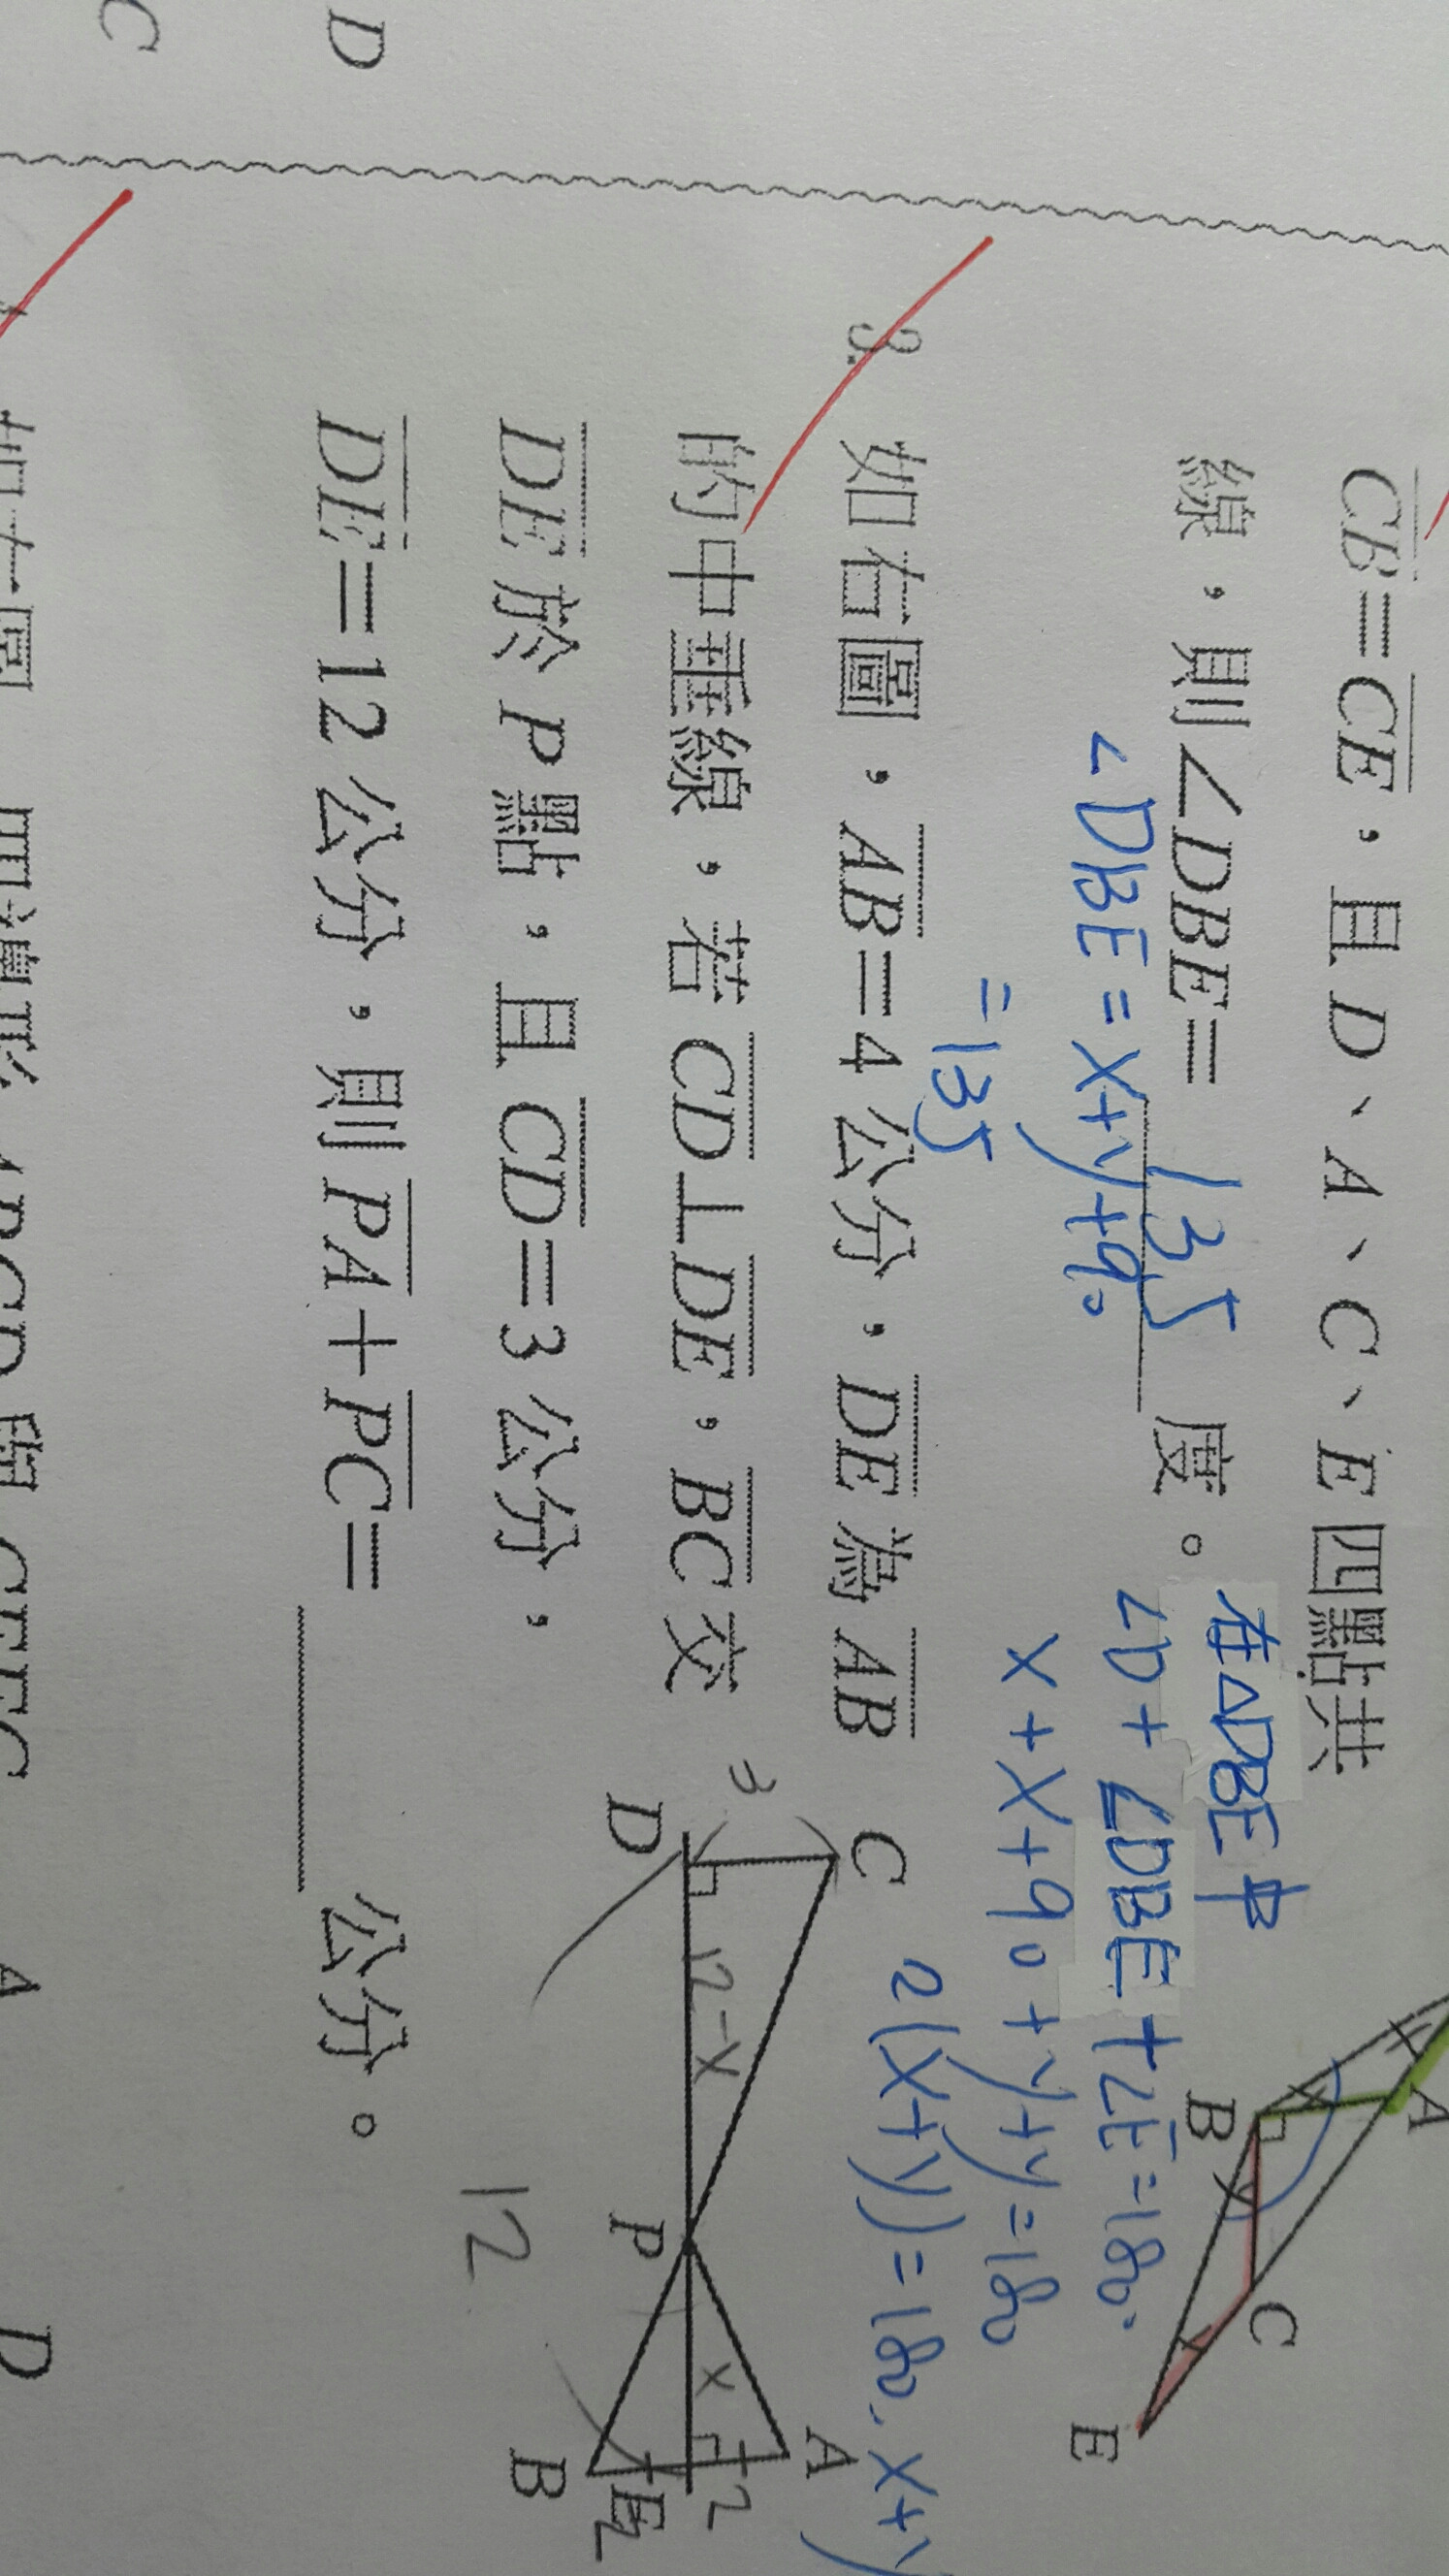 D
C
CB=CE，且 D、A、C、E 四點共
線，則∠DBE= 135 度。
∠DBE = x+y+90
=135
在△DBE中
∠D+∠DBE+∠E=180°
x+x+90+y+y=180
2(x+y)=180
A
B
C
E
x
y
3. 如右圖，AB=4 公分，DE 為 AB
的中垂線，若 CD⊥DE，BC 交
DE 於 P 點，且 CD=3 公分，
DE=12 公分，則 PA+PC=
公分。
C
3
D
12-x
P
x
A
2
E
2
B
12
D
A